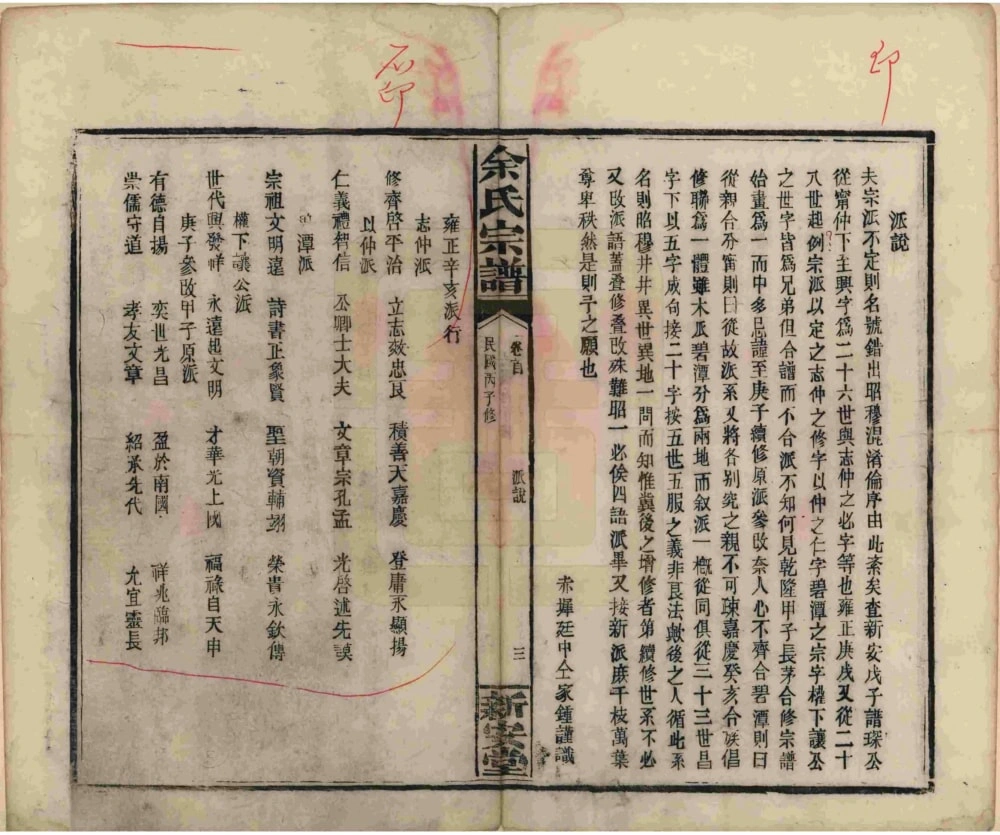 印
石印
派說
夫宗派不定則名號錯出昭穆混淆倫序由此紊矣查新安戊子譜琛公
從甯仲下至興字爲二十六世與志仲之必字等也雍正庚戌又從二十
八世起例宗派以定之志仲之修字以仲之仁字碧潭之宗字權下讓公
之世字皆爲兄弟但合譜而不合派不知何見乾隆甲子長茅合修宗譜
始畫爲一而中多忌諱至庚子續修原派參改奈人心不齊合碧潭則曰
從親合分甯則曰從故派系又將各別究之親不可疎嘉慶癸亥合族倡
修聯爲一體雖木瓜碧潭分爲兩地而叙派一槪從同俱從三十三世昌
字下以五字成句接二十字按五世五服之義非良法歟後之人循此系
名則昭穆井井異世異地一問而知惟冀後之增修者第續修世系不必
又改派語蓋叠修叠改殊難昭一必俟四語派畢又接新派庶千枝萬葉
尊卑秩然是則予之願也
廷申仝家鍾謹識
余氏宗譜
卷首
民國丙子修
派說
三
新安堂
雍正辛亥派行
志仲派
修齊啓平治 立志效忠良 積善天嘉慶 登庸永顯揚
以仲派
仁義禮智信 公卿士大夫 文章宗孔孟 光啓述先謨
潭派
宗祖文明遠 詩書正象賢 聖朝資輔翊 榮貴永欽傳
權下讓公派
世代興發祥 永遠起文明 才華光上國 福祿自天申
庚子參改甲子原派
有德自揚 奕世光昌 盈於南國 祥兆臨邦
崇儒守道 孝友文章 紹承先代 允宜靈長